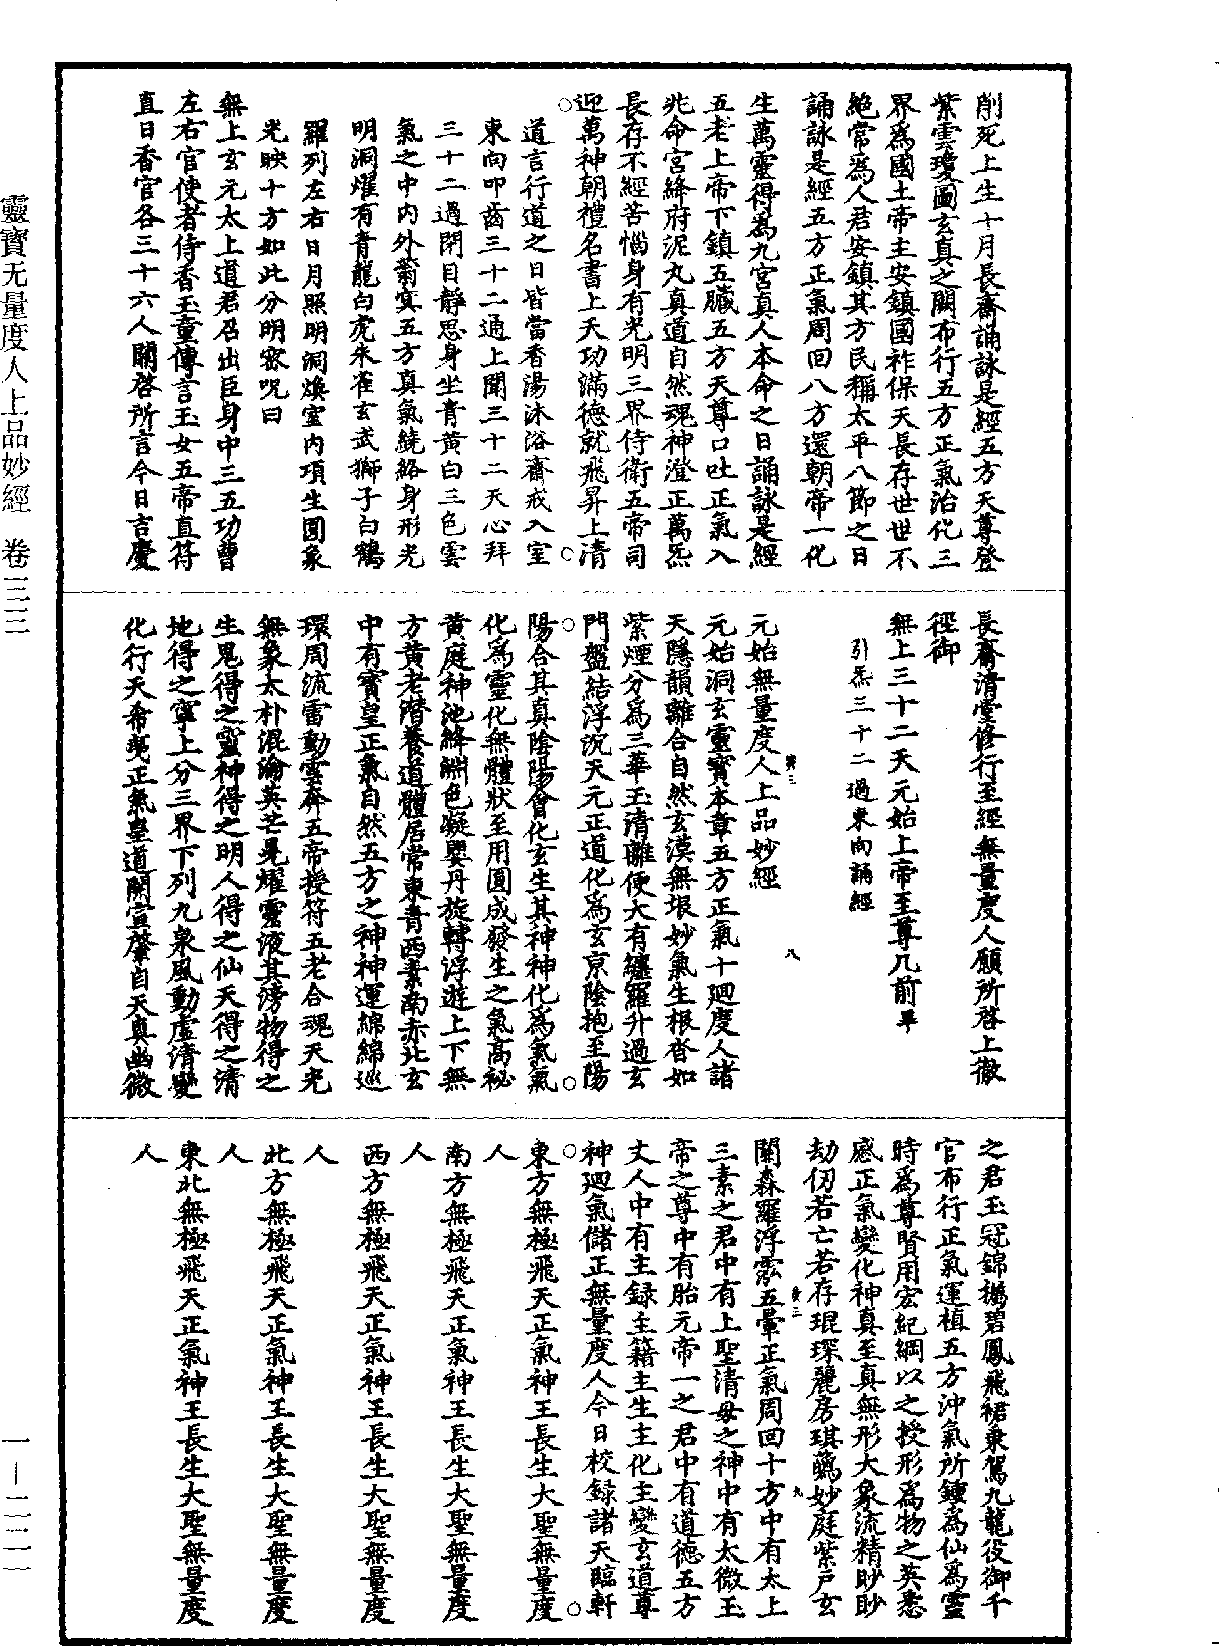 靈寶无量度人上品妙經　卷三三
一—二二一
削死上生十月長齋誦詠是經五方天尊登
紫雲瓊圖玄真之闕布行五方正氣治化三
界爲國土帝主安鎮國祚保天長存世世不
絶常爲人君安鎮其方民稱太平八節之日
誦詠是經五方正氣周回八方還朝帝一化
生萬靈得爲九宫真人本命之日誦詠是經
五老上帝下鎮五臟五方天尊口吐正氣入
兆命宫絳府泥丸真道自然魂神澄正萬炁
長存不經苦惱身有光明三界侍衛五帝司
迎萬神朝禮名書上天功滿德就飛昇上清
道言行道之日皆當香湯沐浴齋戒入室
東向叩齒三十二通上聞三十二天心拜
三十二過閉目靜思身坐青黄白三色雲
氣之中内外蓊冥五方真氣繞絡身形光
明洞燿有青龍白虎朱雀玄武獅子白鶴
羅列左右日月照明洞煥室内項生圓象
光映十方如此分明密呪曰
無上玄元太上道君召出臣身中三五功曹
左右官使者侍香玉童傳言玉女五帝直符
直日香官各三十六人關啓所言今日吉慶
長齋清堂修行至經無量度人願所啓上徹
徑御
無上三十二天元始上帝至尊几前畢
引炁三十二過東向誦經
元始無量度人上品妙經
元始洞玄靈寳本章五方正氣十迴度人諸
天隱韻離合自然玄漠無垠妙氣生根沓如
紫煙分爲三華玉清離便大有纏羅升過玄
門盤結浮沉天元正道化爲玄京陰抱至陽
陽合其真陰陽會化玄生其神神化爲氣氣
化爲靈化無體狀至用圓成發生之氣高祕
黄庭神池絳淵色凝嬰丹旋轉浮遊上下無
方黄老潛養道體居常東青西素南赤北玄
中有寳皇正氣自然五方之神神運綿綿巡
環周流雷動雲奔五帝授符五老合魂天光
無象太朴混淪英芒晃燿靈液其滂物得之
生鬼得之靈神得之明人得之仙天得之清
地得之寧上分三界下列九泉風動虛清變
化行天希夷正氣皇道闡宣肇自天真幽微
之君玉冠錦襦碧鳳飛裙乘駕九龍役御千
官布行正氣運植五方沖氣所鍾爲仙爲靈
時爲尊賢用宏紀綱以之授形爲物之英悉
感正氣變化神真至真無形大象流精眇眇
劫仞若亡若存琨琛麗房琪藹妙庭紫户玄
闌森羅浮霐五暈正氣周回十方中有太上
三素之君中有上聖清母之神中有太微玉
帝之尊中有胎元帝一之君中有道德五方
丈人中有主録主籍主生主化主變玄道尊
神迴氣儲正無量度人今日校録諸天臨軒
東方無極飛天正氣神王長生大聖無量度
人
南方無極飛天正氣神王長生大聖無量度
人
西方無極飛天正氣神王長生大聖無量度
人
北方無極飛天正氣神王長生大聖無量度
人
東北無極飛天正氣神王長生大聖無量度
人